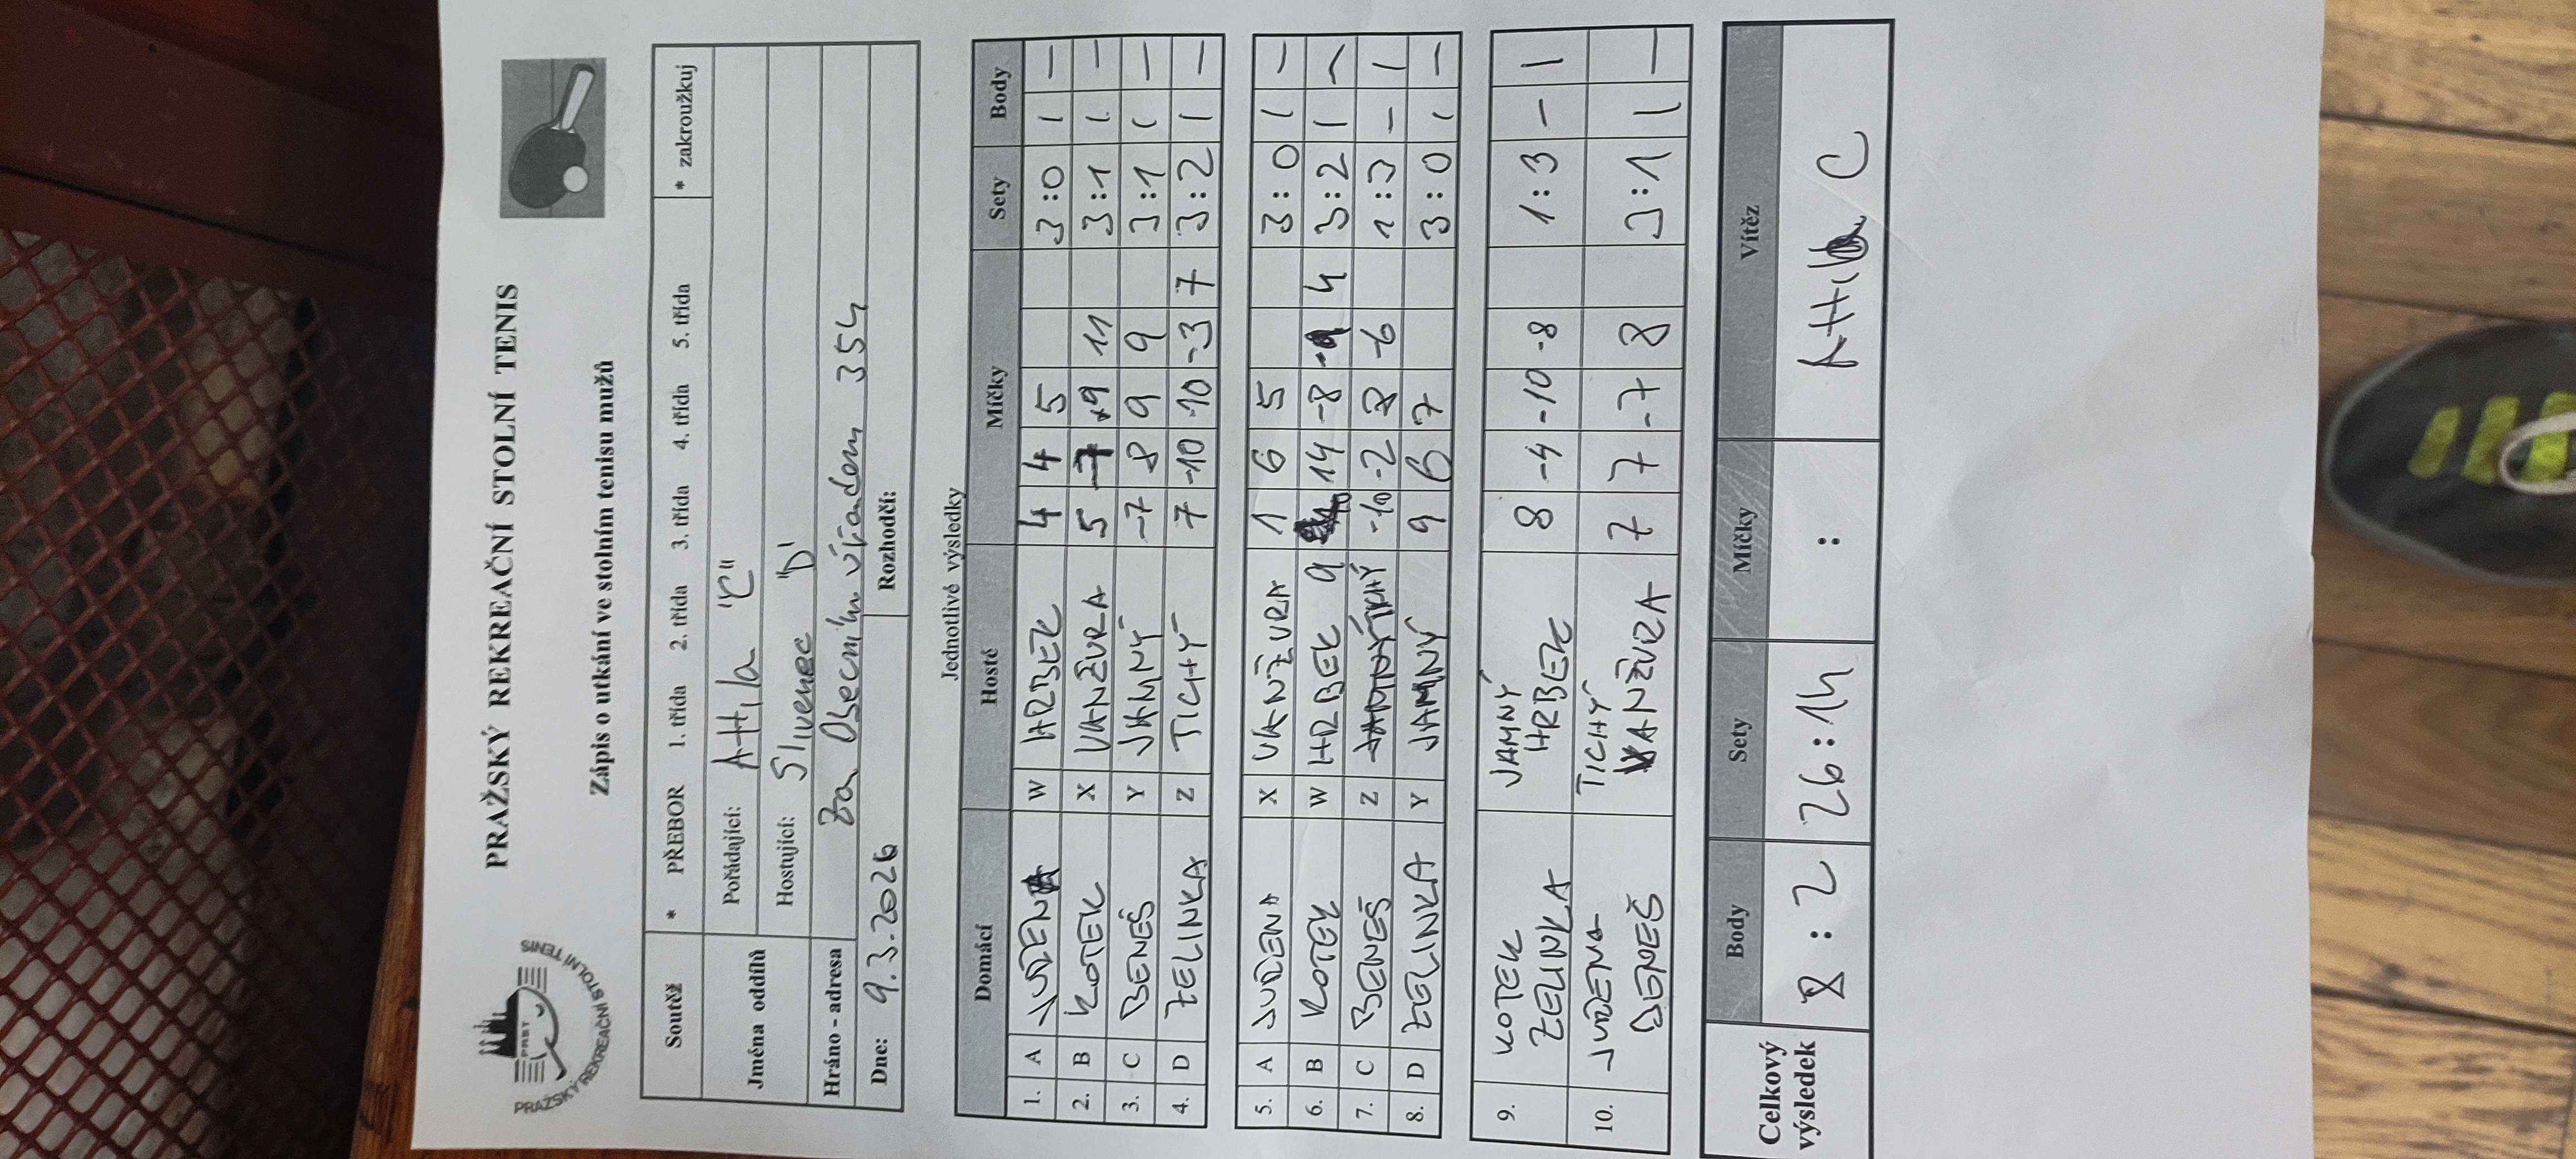 PRAŽSKÝ REKREAČNÍ STOLNÍ TENIS
PRAŽSKÝ REKREAČNÍ STOLNÍ TENIS
PRST
Zápis o utkání ve stolním tenisu mužů
Soutěž * PŘEBOR 1. třída 2. třída 3. třída 4. třída 5. třída * zakroužkuj
Jména oddílů Pořádající: Attila "C"
Hostující: Slivenec "D"
Hráno - adresa Za Obecním úřadem 354
Dne: 9.3.2026 Rozhodčí:
Jednotlivé výsledky
Domácí Hosté Míčky Sety Body
1. A JUŘENA W HRBEK 4 4 5 3:0 1 -
2. B KOTEK X VANŽURA 5 -7 9 11 3:1 1 -
3. C BENEŠ Y JAMNÝ -7 8 9 9 3:1 1 -
4. D ZELINKA Z TICHÝ 7 -10 -10 -3 7 3:2 1 -
5. A JUŘENA X VANŽURA 1 6 5 3:0 1 -
6. B KOTEK W HRBEK 9 14 -8 4 3:2 1 -
7. C BENEŠ Z TICHÝ -10 -2 8 -6 1:3 - 1
8. D ZELINKA Y JAMNÝ 9 6 7 3:0 1 -
9. KOTEK JAMNÝ 8 -4 -10 -8 1:3 - 1
ZELINKA HRBEK
10. JUŘENA TICHÝ 7 7 -7 8 3:1 1 -
BENEŠ VANŽURA
Celkový výsledek Body Sety Míčky Vítěz
8:2 26:14 : Attila C